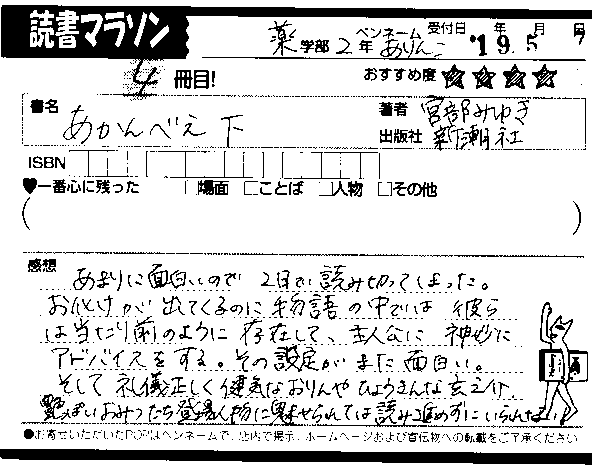 読書マラソン
薬学部2年 ペンネーム ありんこ 受付日 '19年5月7日
4冊目! おすすめ度 ☆☆☆☆
書名 あかんべえ 下 著者 宮部みゆき
出版社 新潮社
ISBN
♥一番心に残った □場面 □ことば □人物 □その他
( )
感想 あまりに面白いので 2日で読み切ってしまった。
お化けが出てくるのに物語の中では彼ら
は当たり前のように存在して、主人公に神妙に
アドバイスをする。その設定がまた面白い。
そして礼儀正しく健気なおりんやひょうきんな玄之介
艶っぽいおみつたち登場人物に魅せられては読み進めずにいられない
●お寄せいただいたPOPはペンネームで、店内で掲示、ホームページおよび宣伝物への転載をご了承ください